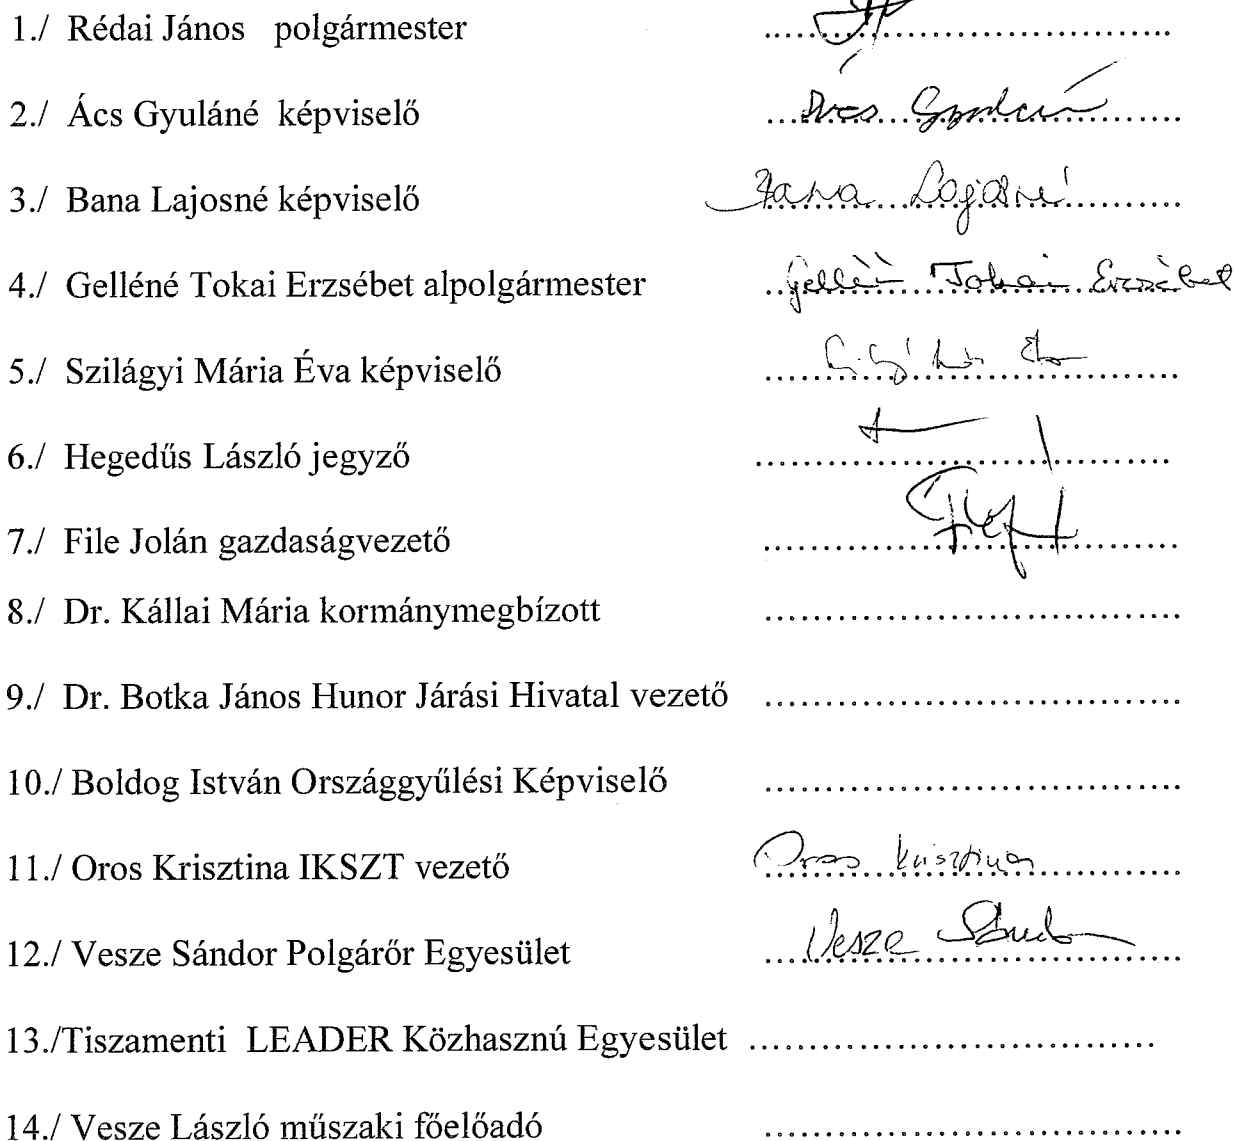 1./ Rédai János polgármester ........................................
2./ Ács Gyuláné képviselő Ács Gyuláné
3./ Bana Lajosné képviselő Bana Lajosné
4./ Gelléné Tokai Erzsébet alpolgármester Gelléné Tokai Erzsébet
5./ Szilágyi Mária Éva képviselő ........................................
6./ Hegedűs László jegyző ........................................
7./ File Jolán gazdaságvezető ........................................
8./ Dr. Kállai Mária kormánymegbízott ........................................
9./ Dr. Botka János Hunor Járási Hivatal vezető ........................................
10./ Boldog István Országgyűlési Képviselő ........................................
11./ Oros Krisztina IKSZT vezető Oros Krisztina
12./ Vesze Sándor Polgárőr Egyesület Vesze Sándor
13./Tiszamenti LEADER Közhasznú Egyesület ........................................
14./ Vesze László műszaki főelőadó ........................................